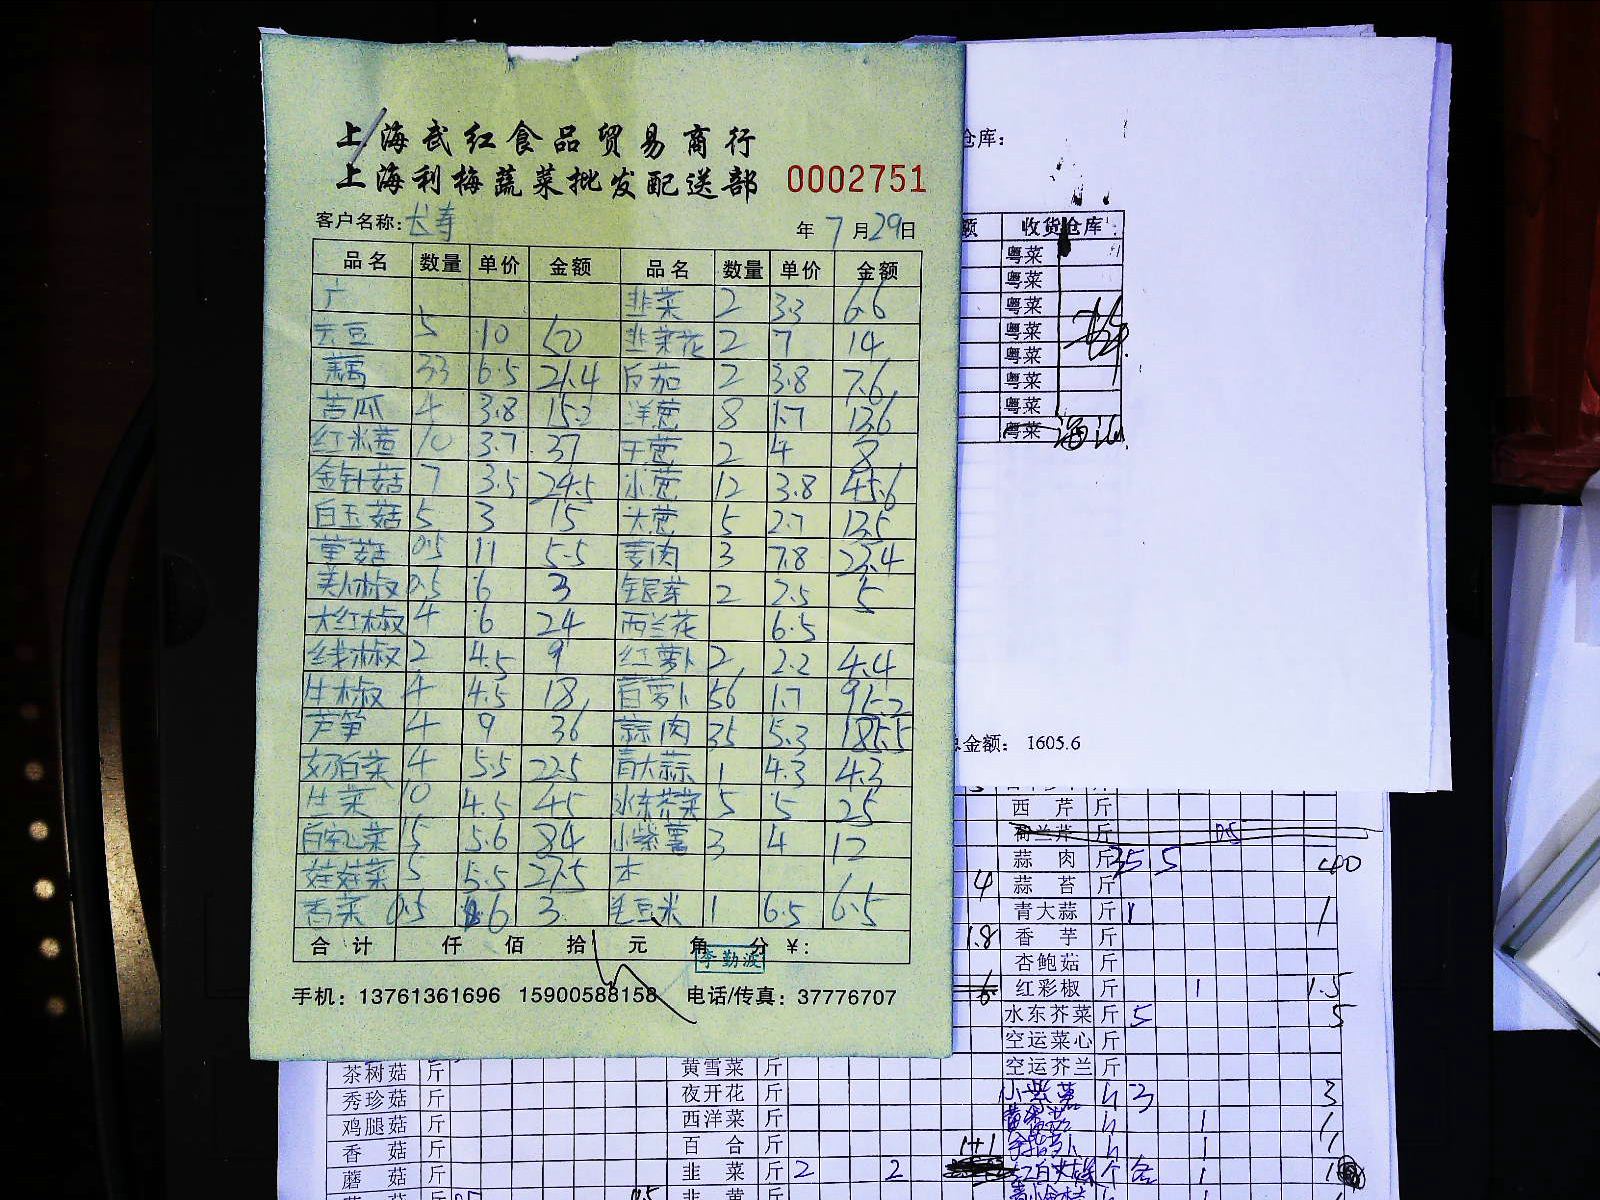 上海武红食品贸易商行
上海利梅蔬菜批发配送部 0002751
客户名称: 长寿 年 7 月 29 日
品名 数量 单价 金额 品名 数量 单价 金额
广 韭菜 2 3.3 6.6
5 10 50 韭菜花 2 7 14
藕 3.3 6.5 21.4 反茄 2 3.8 7.6
苦瓜 4 3.8 15.2 洋葱 8 1.7 13.6
红米苋 10 3.7 37 干葱 2 4 8
金针菇 7 3.5 24.5 小葱 12 3.8 45.6
白玉菇 5 3 15 大葱 5 2.7 13.5
草菇 0.5 11 5.5 姜肉 3 7.8 23.4
美人椒 0.5 6 3 银芽 2 2.5 5
大红椒 4 6 24 西兰花 6.5
线椒 2 4.5 9 红萝卜 2 2.2 4.4
牛椒 4 4.5 18 白萝卜 56 1.7 95.2
芦笋 4 9 36 蒜肉 35 5.3 185.5
奶白菜 4 5.5 22.5 青大蒜 1 4.3 4.3
生菜 10 4.5 45 水东芥菜 5 5 25
白菜心菜 15 5.6 84 小紫薯 3 4 12
娃娃菜 5 5.5 27.5 本
香菜 0.5 6 3 毛豆米 1 6.5 6.5
合计 仟 佰 拾 元 角 分 ¥:
李勤波
手机: 13761361696 15900588158 电话/传真: 37776707
仓库:
额 收货仓库
粤菜
粤菜
粤菜
粤菜
粤菜
粤菜
粤菜
粤菜
总金额: 1605.6
西芹 斤
荷兰芹 斤 0.5
蒜肉 斤 35 5 40
4 蒜苔 斤
青大蒜 斤 1 1
1.8 香芋 斤
杏鲍菇 斤
6 红彩椒 斤 1 1.5
水东芥菜 斤 5 5
空运菜心 斤
茶树菇 斤 黄雪菜 斤 空运芥兰 斤
秀珍菇 斤 夜开花 斤 小紫薯 3 3
鸡腿菇 斤 西洋菜 斤 1 1
香菇 斤 百合 斤 1+1 1 1
蘑菇 斤 韭菜 斤 2 2 1 1
韭黄 斤